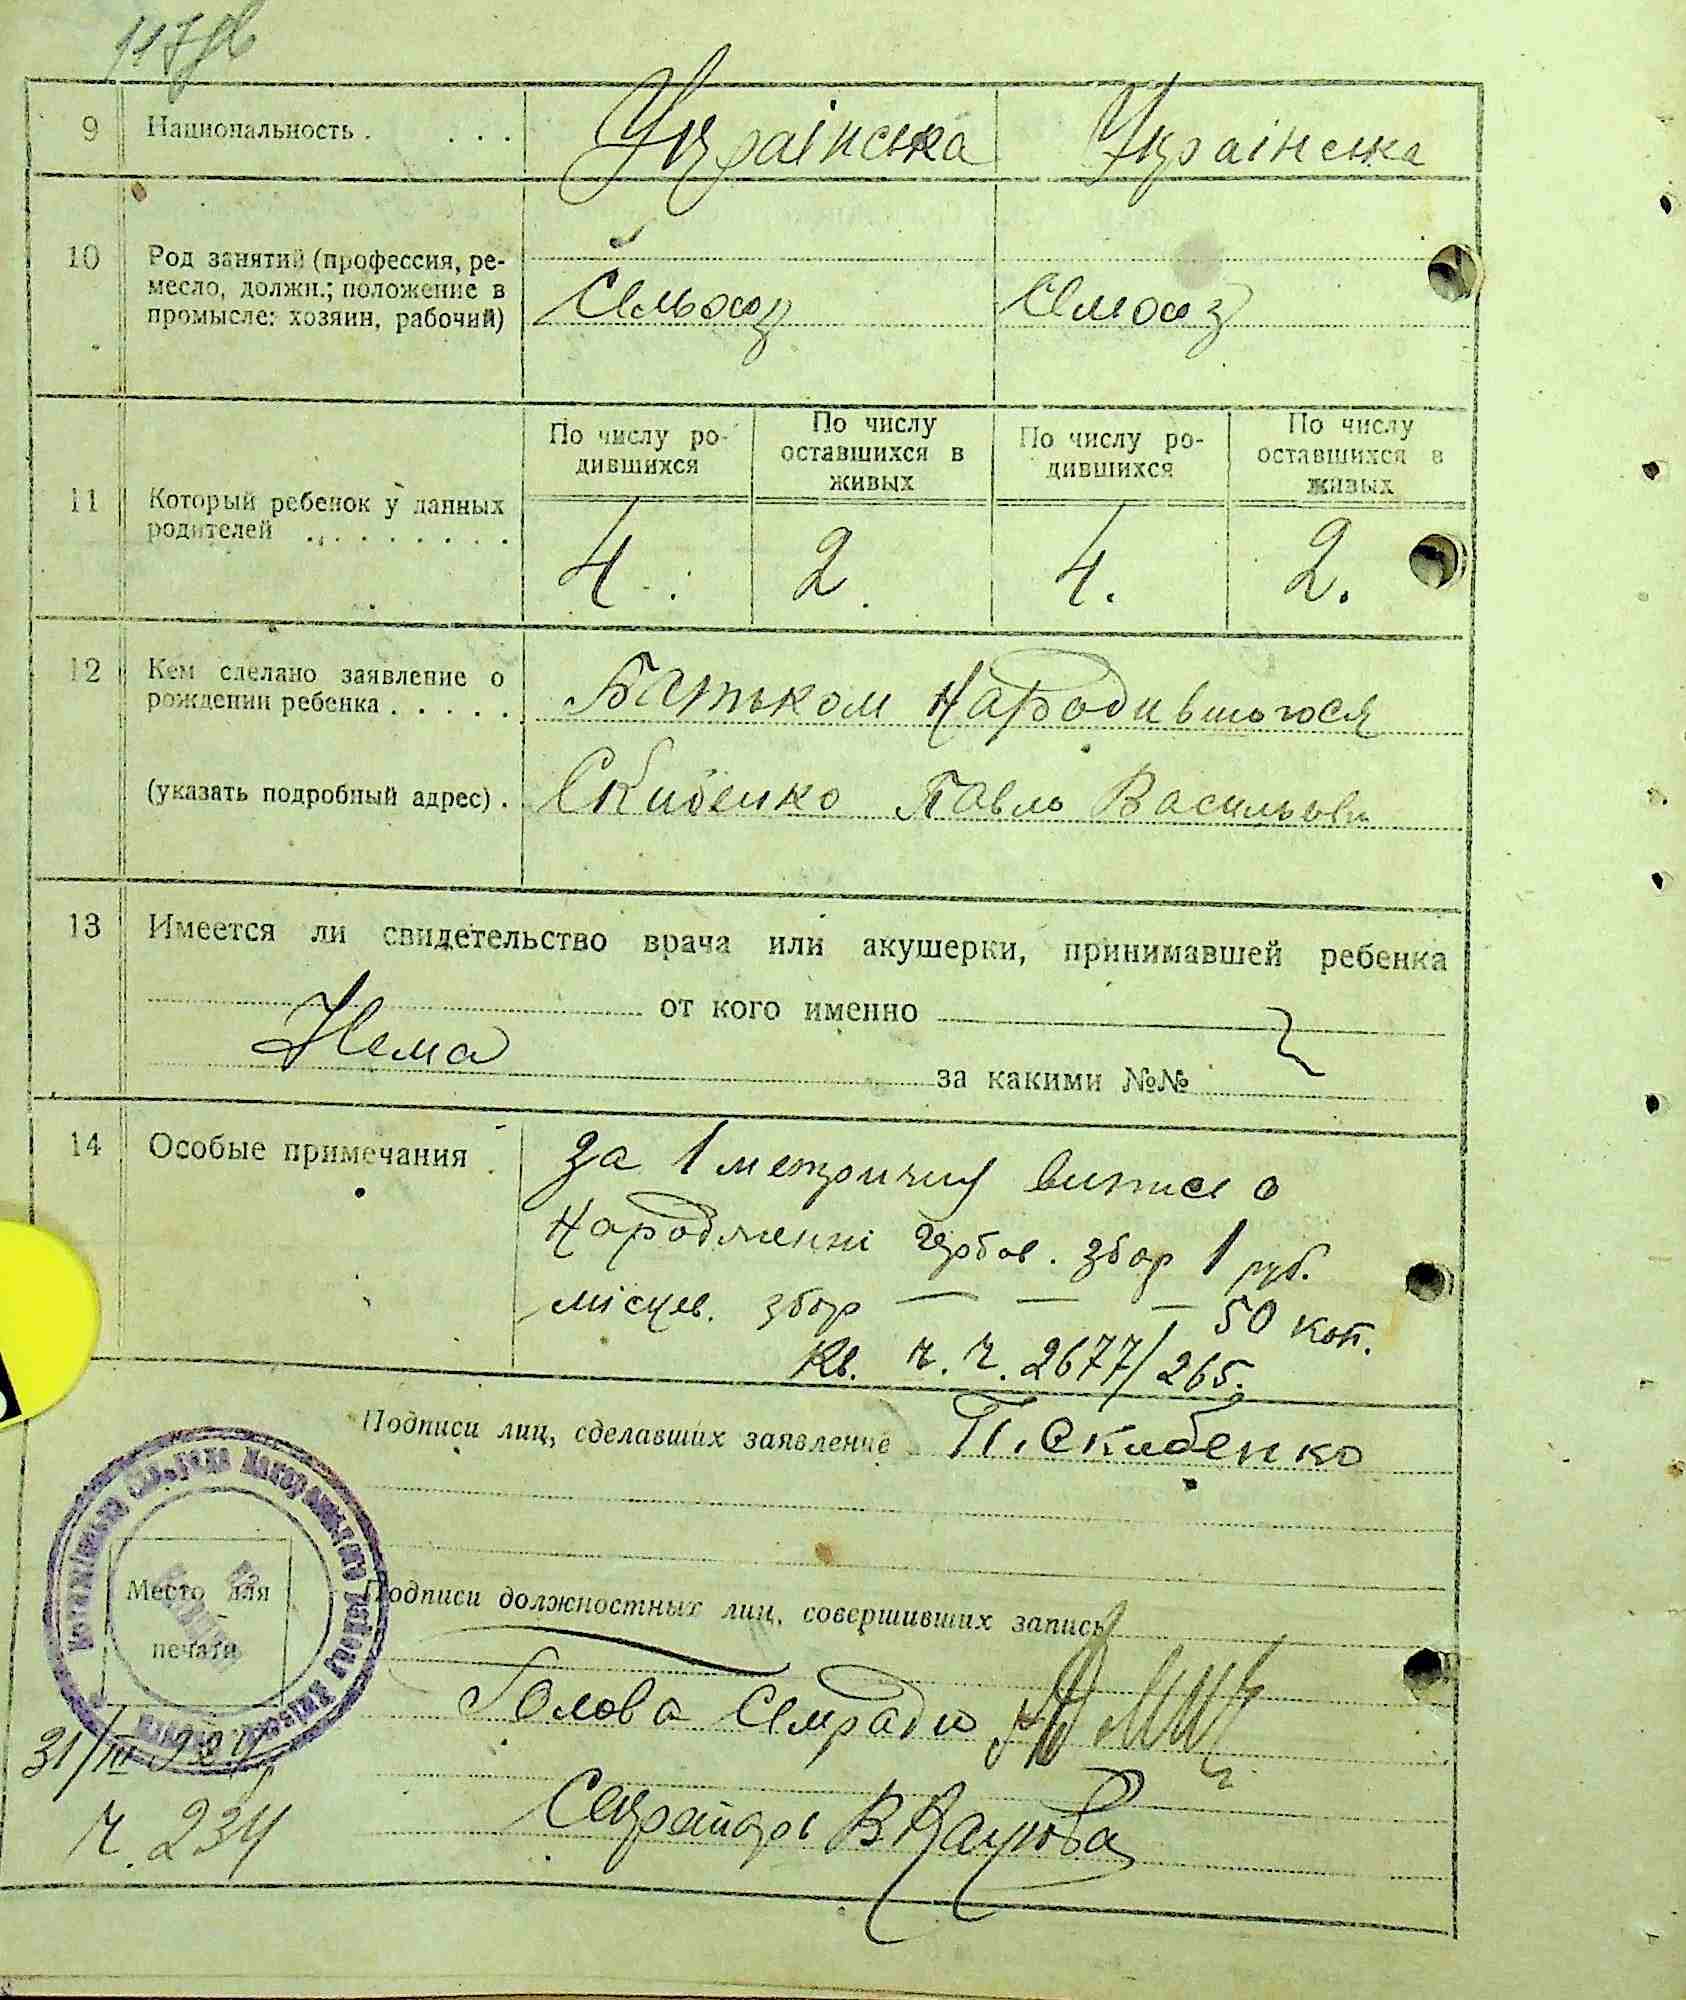 9 Национальность . . . . Українська Українська
10 Род занятий (профессия, ре-
месло, должн.; положение в
промысле: хозяин, рабочий)
Сільхоз Сільхоз
11 Который ребенок у данных
родителей . . . . . . . .
По числу ро-
дившихся
По числу
оставшихся в
живых
По числу ро-
дившихся
По числу
оставшихся в
живых
4. 2. 4. 2.
12 Кем сделано заявление о
рождении ребенка . . . . .
Батьком народившогося
(указать подробный адрес) .
Скибенко Павло Васильови
13 Имеется ли свидетельство врача или акушерки, принимавшей ребенка
от кого именно
Нема
за какими №№
14 Особые примечания .
За 1 метричну виписе о
народженні гербов. збор 1 руб.
місцев. збор — — — 50 коп.
Кв. ч. ч. 2677/265.
Подписи лиц, сделавших заявление П. Скибенко
Место для
печати
Подписи должностных лиц, совершивших запись
Голова сільради
31/III
Секретарь
ч. 234